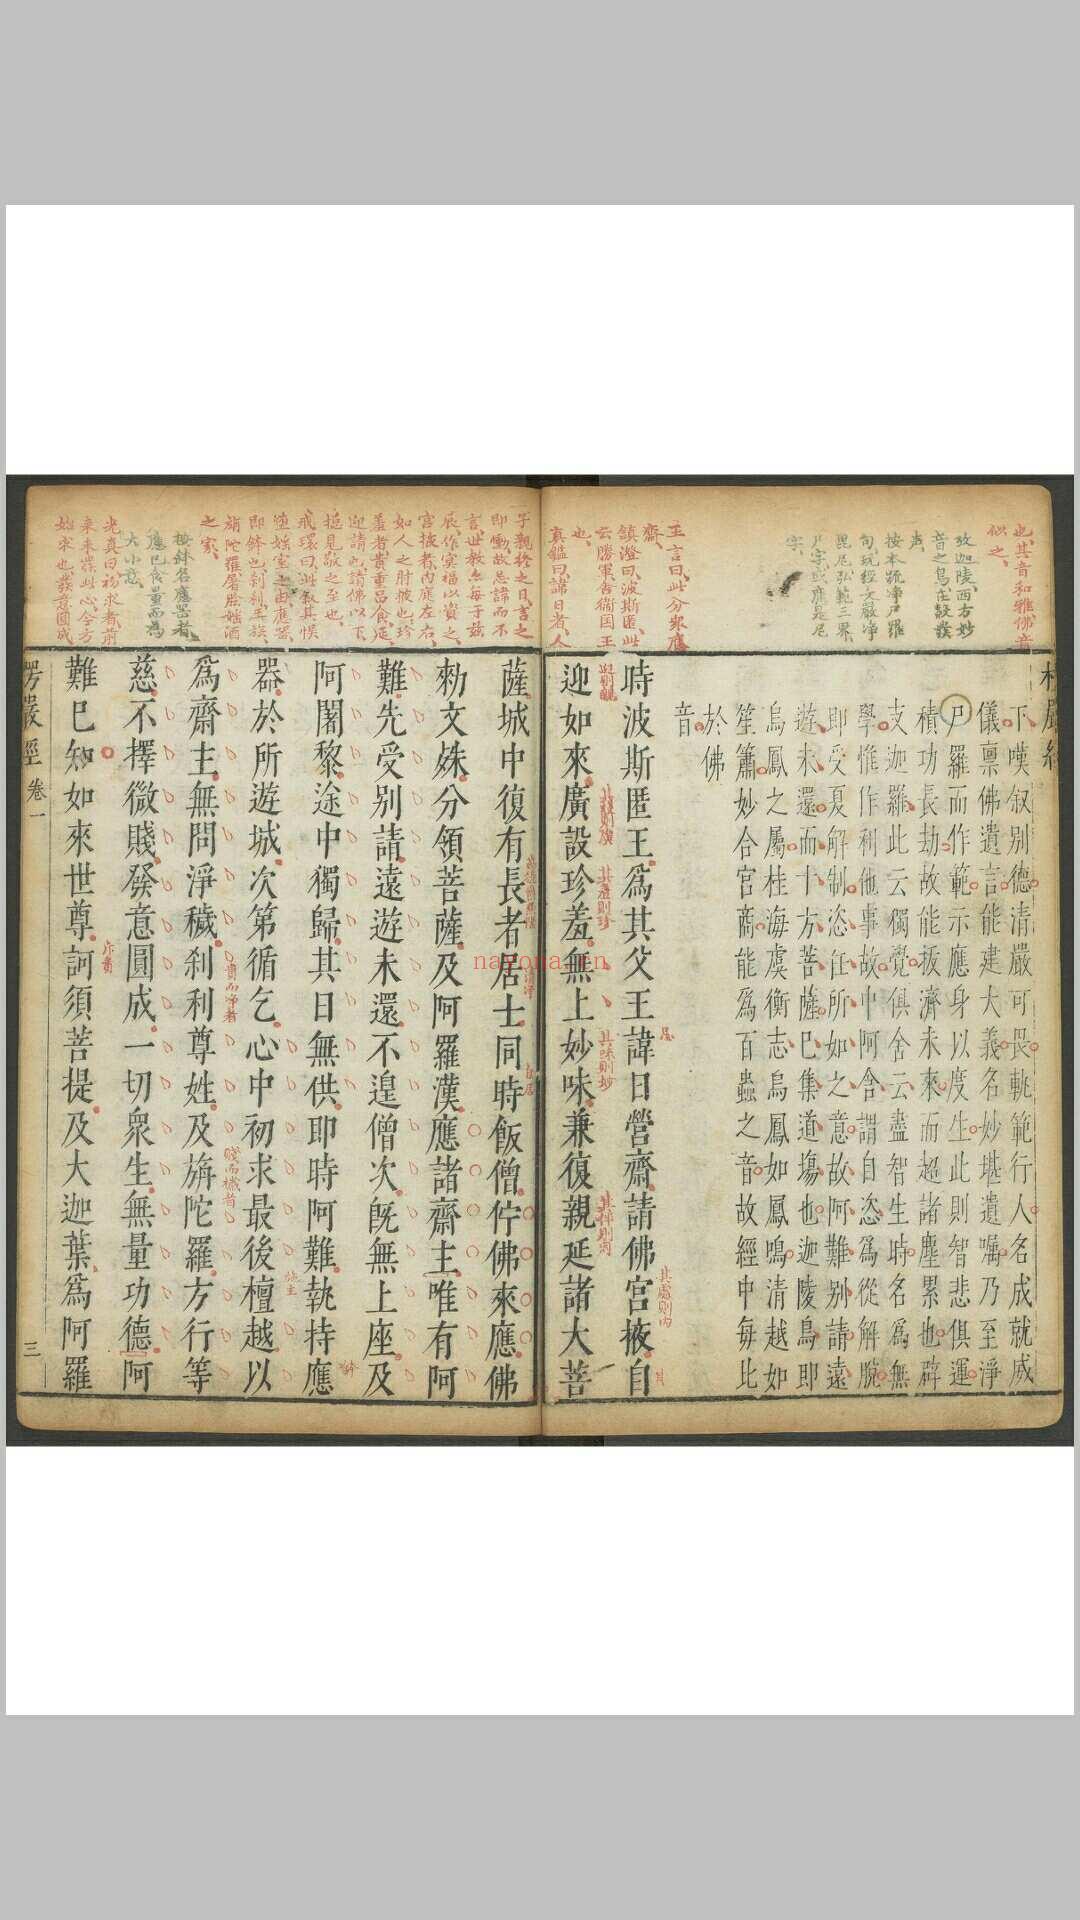 下嘆叙別德清嚴可畏軌範行人名成就威
儀稟佛遺言能建大義名妙堪遺囑乃至淨
尸羅而作範示應身以度生此則智悲俱運
積功長劫故能拔濟未來而超諸塵累也辟
支迦羅此云獨覺俱舍云盡智生時名爲無
學惟作利他事故中阿含謂自恣爲從解脫
即受夏解制恣任所如之意故阿難別請遠
遊未還而十方菩薩已集道場也迦陵鳥即
烏鳳之屬桂海虞衡志烏鳳如鳳鳴清越如
笙簫妙合宮商能爲百蟲之音故經中每比
於佛
音
時波斯匿王爲其父王諱日營齋請佛宮掖自
迎如來廣設珍羞無上妙味兼復親延諸大菩
薩城中復有長者居士同時飯僧佇佛來應佛
勑文殊分領菩薩及阿羅漢應諸齋主唯有阿
難先受別請遠遊未還不遑僧次既無上座及
阿闍黎途中獨歸其日無供即時阿難執持應
器於所遊城次第循乞心中初求最後檀越以
爲齋主無問淨穢刹利尊姓及旃陀羅方行等
慈不擇微賤發意圓成一切衆生無量功德阿
難已知如來世尊訶須菩提及大迦葉爲阿羅
楞嚴經 卷一
三
也其音和雅佛音
似之
攷迦陵西方妙
音之鳥在㲉發
声
按本疏淨尸羅
句玩經文嚴淨
毘尼弘範三界
尸字或應是尼
字
王言曰此分衆應
齋
鎮澄曰波斯匿此
云勝軍舍衛国王
也
真鑑曰諱日者人
子親終之日言之
即慟故忌諱而不
言世教念每于玆
辰作冥福以資之
宮掖者內庭左右
如人之肘掖也珍
羞者貴重品食延
迎請也請佛以下
揔見敬之至也
戒環曰此叙其悞
墮婬室之由應器
即鉢也刹利王族
旃陀羅屠膾婬酒
之家
按鉢名應器者
應已食量而爲
大小意
光真曰初求者前
来未發此心今方
始求也發意圓成
其設則廣
其羞則珍
其味則妙
其處則內
貴而淨者
賤而穢者
施主
nayona.cn